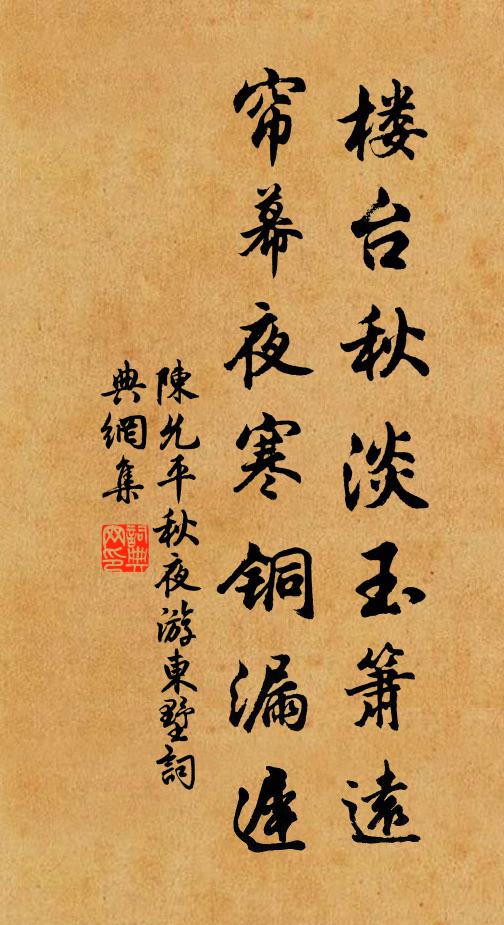 楼台秋淡玉箫遠
帘幕夜寒铜漏遲
陳允平秋夜游東墅詞
典網集
詞典网印